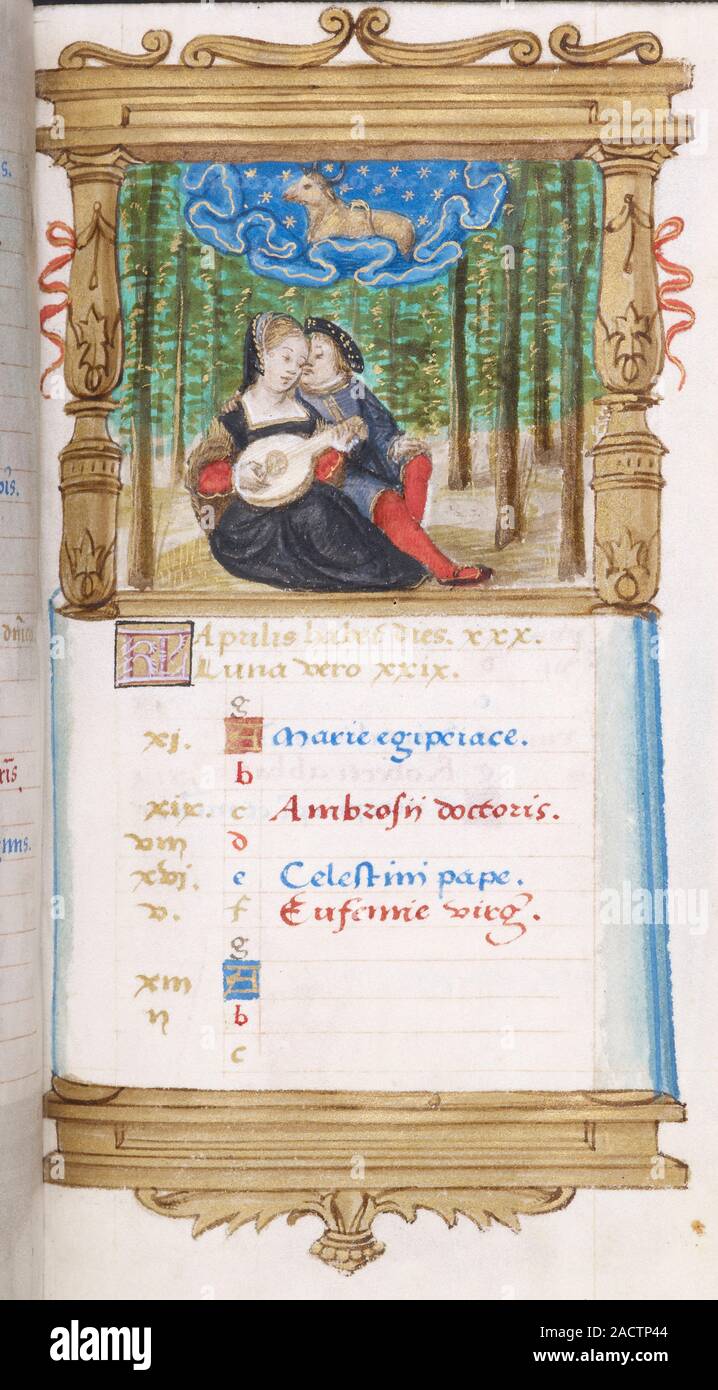 s.
KL Aprilis habet dies. xxx.
Luna vero xxix.
g
xj. A Marie egipciace.
b
xix. c Ambrosij doctoris.
viii d
xvi. e Celestini pape.
v. f Eufemie virg.
g
xiii A
ii b
c
alamy
Image ID: 2ACTP44
www.alamy.com